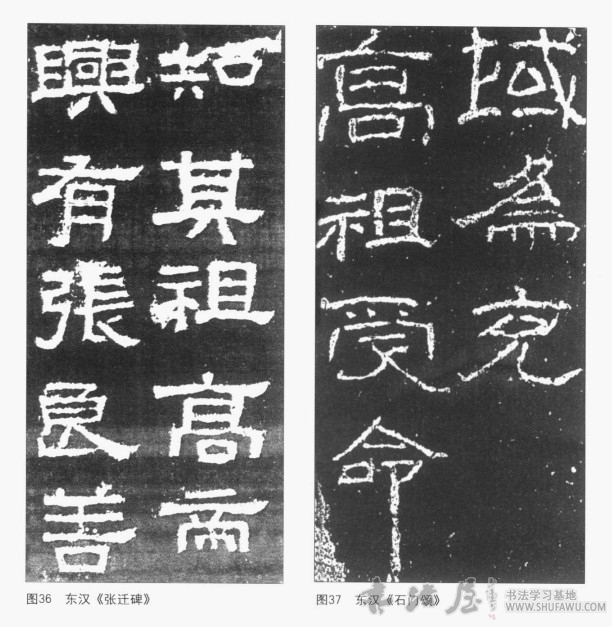 知其祖高帝
興有張良善
域為充
高祖受命
图36 东汉《张迁碑》
图37 东汉《石门颂》
书法屋
书法学习基地
WWW.SHUFAWU.COM